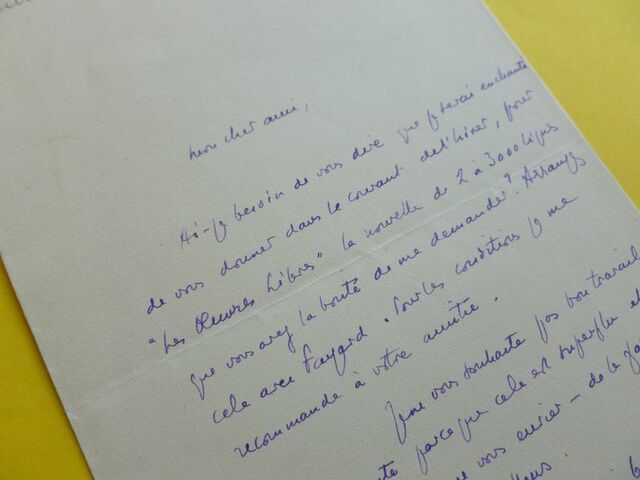 mon cher ami,
Ai-je besoin de vous dire que je serai enchanté
de vous donner dans le courant de l'hiver, pour
"Les Œuvres Libres" la nouvelle de 2 à 3000 lignes
que vous avez la bonté de me demander ? Arrangez
cela avec Fayard. Pour les conditions je me
recommande à votre amitié.
Je ne vous souhaite pas bon travail
parce que cela est superflu et
vous envier — de le